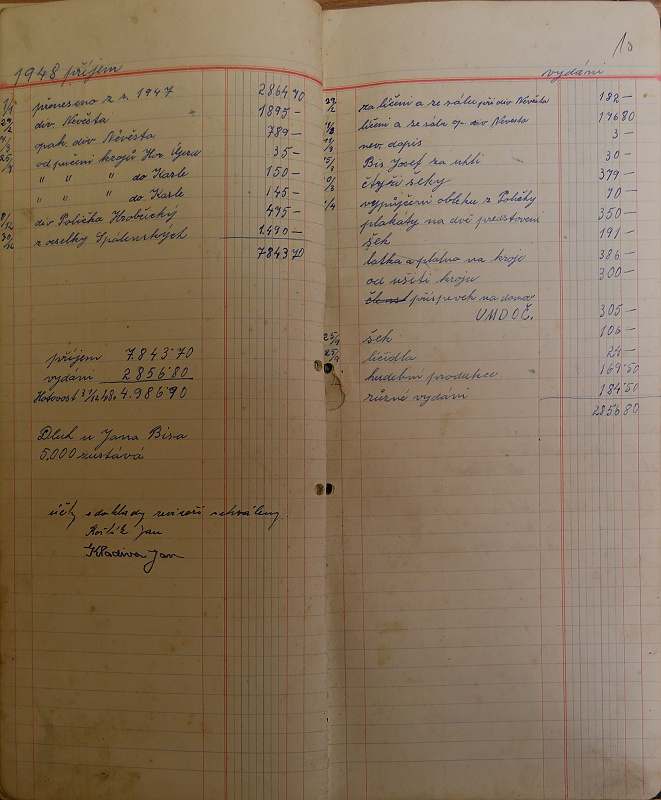 1948 příjem
1/1 přeneseno z r. 1947 2864 70
div. Nevěsta 1895 —
opak. div Nevěsta 789 —
od půjčení krojů Hor. Újezd 35 —
" " " do Karle 150 —
" " do Karle 145 —
div Polička Hrobčický 475 —
z veselky Spálenských 1490 —
7843 70
příjem 7.843·70
vydání 2856·80
Hotovost 31/12 48. 4.986·90
Dluh u Jana Bisa
5.000 zustává
účty a doklady revisoři schváleny.
Košťák Jan
Kladiva Jan
10
vydání
za líčeni a ze sálu při div Nevěsta 182 —
líčeni a ze sálu op. div Nevěsta 176 80
nov. dopis 3 —
Bis Josef za uhlí 30 —
čtyři šeky 379 —
vypůjčení obleku z Poličky 70 —
plakáty na dvě predstoveni 350 —
šek 191 —
latka a platno na kroje 386 —
od ušití kroju 300 —
příspěvek na
UMDOČ. 305 —
25/9 šek 106 —
25/9 líčidla 24 —
hudební produkce 169·50
různé vydání 184·50
2856 80